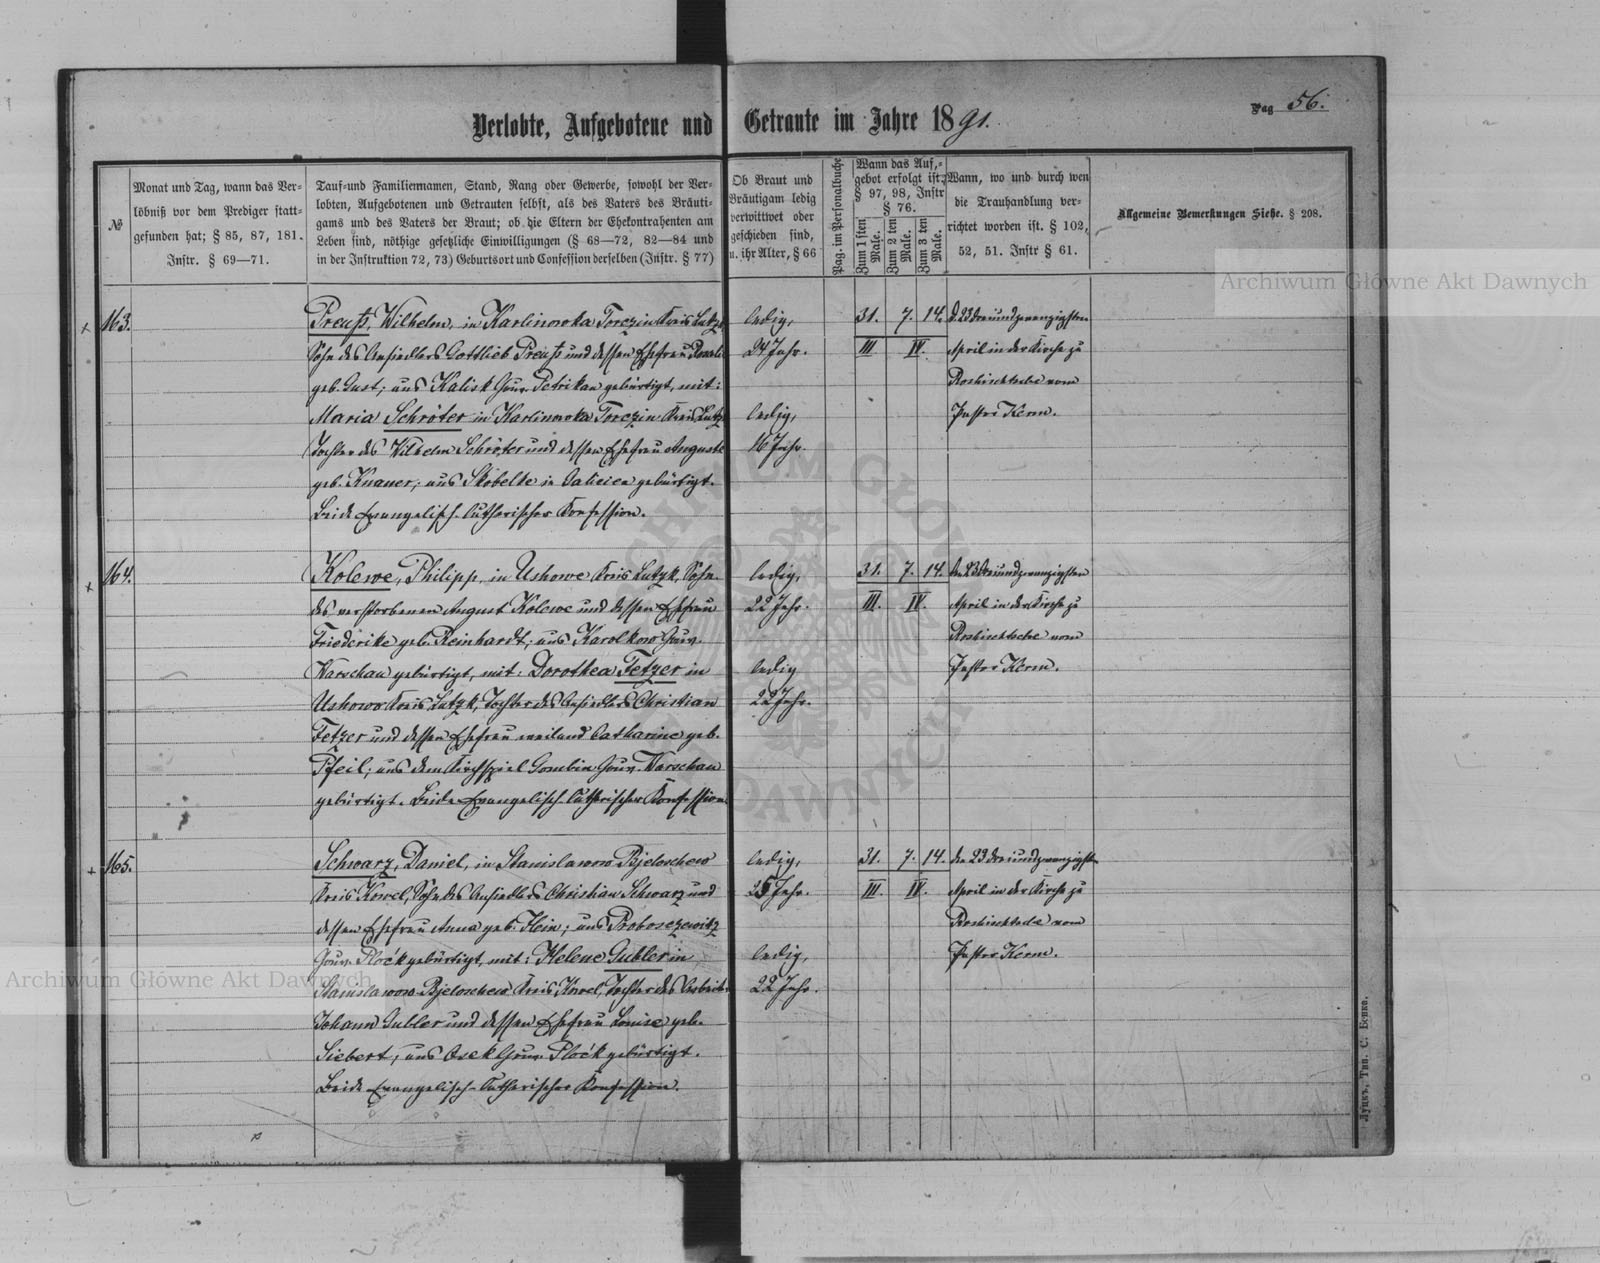 Verlobte, Aufgebotene und Getraute im Jahre 1891.
Pag 56.
№
Monat und Tag, wann das Ver-
löbniß vor dem Prediger statt-
gefunden hat; § 85, 87, 181.
Instr. § 69—71.
Tauf- und Familiennamen, Stand, Rang oder Gewerbe, sowohl der Ver-
lobten, Aufgebotenen und Getrauten selbst, als des Vaters des Bräuti-
gams und des Vaters der Braut; ob die Eltern der Ehekontrahenten am
Leben sind, nöthige gesetzliche Einwilligungen (§ 68—72, 82—84 und
in der Instruktion 72, 73) Geburtsort und Confession derselben (Instr. § 77)
Ob Braut und
Bräutigam ledig
verwittwet oder
geschieden sind,
u. ihr Alter, § 66
Pag. im Personalbuche
Wann das Auf-
gebot erfolgt ist;
§ 97, 98, Instr
§ 76.
Zum 1 sten Male.
Zum 2 ten Male.
Zum 3 ten Male.
Wann, wo und durch wen
die Trauhandlung ver-
richtet worden ist. § 102,
52, 51. Instr § 61.
Allgemeine Bemerkungen Siehe. § 208.
163.
Preuß, Wilhelm, in Karlinowka Torczin Kreis Lutzk,
Sohn des Ansiedlers Gottlieb Preuß und dessen Ehefrau Rosalie
geb. Gust; aus Kalisk Gouv. Petrikau gebürtigt, mit:
Maria Schröter in Karlinowka Torczin Kreis Lutzk
Tochter des Wilhelm Schröter und dessen Ehefrau Auguste
geb. Knauer; aus Skobelke in Galicien gebürtigt.
Beide Evangelisch-Lutherischer Konfession.
ledig,
24 Jahr.
ledig,
16 Jahr.
31. 7. 14.
III IV.
d. 23 dreiundzwanzigsten
April in der Kirche zu
Roshischtsche vom
Pastor Kerm.
164.
Kolewe, Philipp, in Ushowo Kreis Lutzk, Sohn
des verstorbenen August Kolewe und dessen Ehefrau
Friederike geb. Reinhardt; aus Karolkow Gouv.
Warschau gebürtigt, mit: Dorothea Fetzer in
Ushowo Kreis Lutzk, Tochter des Ansiedlers Christian
Fetzer und dessen Ehefrau weiland Catharine geb.
Pfeil; aus dem Kirchspiel Gombin Gouv. Warschau
gebürtigt. Beide Evangelisch-Lutherischer Konfession.
ledig,
22 Jahr.
ledig
22 Jahr.
31. 7. 14.
III. IV.
den 23 dreiundzwanzigsten
April in der Kirche zu
Roshischtsche vom
Pastor Kerm.
165.
Schwarz, Daniel, in Stanislawow Bjeloschew
Kreis Kowel, Sohn des Ansiedlers Christian Schwarz und
dessen Ehefrau Anna geb. Hein; aus Proboszewitz
Gouv. Plock gebürtigt, mit: Helene Gubler in
Stanislawow-Bjeloschew Kreis Kowel, Tochter des Arbeiters
Johann Gubler und dessen Ehefrau Louise geb.
Siebert; aus Osek Gouv. Plock gebürtigt.
Beide Evangelisch-Lutherischer Konfession.
ledig,
25 Jahr.
ledig,
22 Jahr.
31. 7. 14.
III. IV.
den 23 dreiundzwanzigsten
April in der Kirche zu
Roshischtsche vom
Pastor Kerm.
Луцкъ, Тип. С. Бонко.
Archiwum Główne Akt Dawnych
Archiwum Główne Akt Dawnych